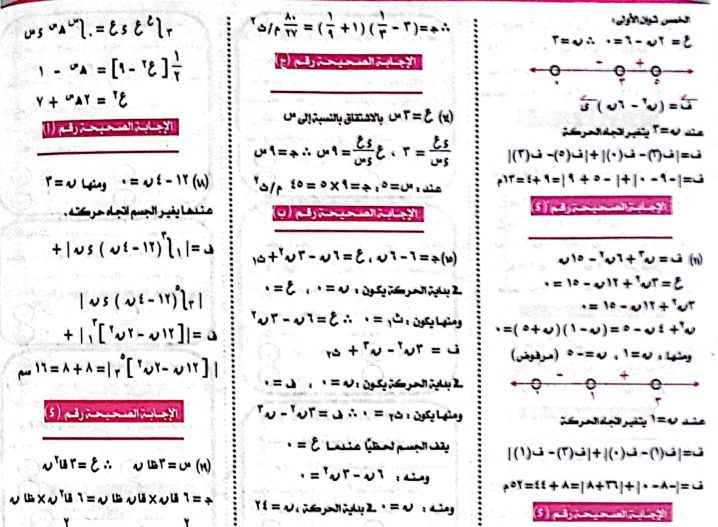 الخمس ثوان الأولى:
ع = ٢ن - ٦ = ٠ ∴ ن = ٣
- +
٠ ٣ ٥
ف = (ن٢ - ٦ن) ى
عند ن = ٣ يتغير اتجاه الحركة
ف = |ف(٣) - ف(٠)| + |ف(٥) - ف(٣)|
ف = |-٩ - ٠| + |-٥ + ٩| = ٩ + ٤ = ١٣م
الإجابة الصحيحة رقم (٤)
ف = ن٣ + ٦ن٢ - ١٥ن
ع = ٣ن٢ + ١٢ن - ١٥ = ٠
٣ن٢ + ١٢ن - ١٥ = ٠
ن٢ + ٤ن - ٥ = (ن - ١)(ن + ٥) = ٠
ومنها : ن = ١ ، ن = -٥ (مرفوض)
- +
٠ ١ ٣
عند ن = ١ يتغير اتجاه الحركة
ف = |ف(١) - ف(٠)| + |ف(٣) - ف(١)|
ف = |-٨ - ٠| + |٣٦ + ٨| = ٨ + ٤٤ = ٥٢م
الإجابة الصحيحة رقم (٤)
∴ جـ = (٣ - ١/٣)(١ + ١/٩) = ٨٠/٢٧ م/ث٢
الإجابة الصحيحة رقم (ج)
(١٤) ع = ٣س بالاشتقاق بالنسبة إلى س
ءع/ءس = ٣ ، ع ءع/ءس = ٩س ∴ جـ = ٩س
عند : س = ٥ ، جـ = ٩ × ٥ = ٤٥ م/ث٢
الإجابة الصحيحة رقم (ب)
(١٥) جـ = ٦ - ٦ن ، ع = ٦ن - ٣ن٢ + ث١
في بداية الحركة يكون : ن = ٠ ، ع = ٠
ومنها يكون : ث١ = ٠ ∴ ع = ٦ن - ٣ن٢
ف = ٣ن٢ - ن٣ + ث٢
في بداية الحركة يكون : ن = ٠ ، ف = ٠
ومنها يكون : ث٢ = ٠ ∴ ف = ٣ن٢ - ن٣
يقف الجسم لحظياً عندما ع = ٠
ومنه : ٦ن - ٣ن٢ = ٠
ومنه : ن = ٠ في بداية الحركة ، ن = ٢ث
∫ ع ءع = ∫ ٨س ءس
١/٢ [ع٢ - ٩] = ٨س - ١
ع٢ = ٢٨س + ٧
الإجابة الصحيحة رقم (أ)
(١٨) ١٢ - ٤ن = ٠ ومنها ن = ٣
عندها يغير الجسم اتجاه حركته.
ف = |∫ (١٢ - ٤ن) ءن| +
|∫ (١٢ - ٤ن) ءن|
ف = |[١٢ن - ٢ن٢]| +
|[١٢ن - ٢ن٢]| = ٨ + ٨ = ١٦ سم
الإجابة الصحيحة رقم (٤)
(١٩) س = ٣ظا ن ∴ ع = ٣قا٢ن
جـ = ٦ قان × قان ظا ن = ٦ قا٢ن × ظا ن